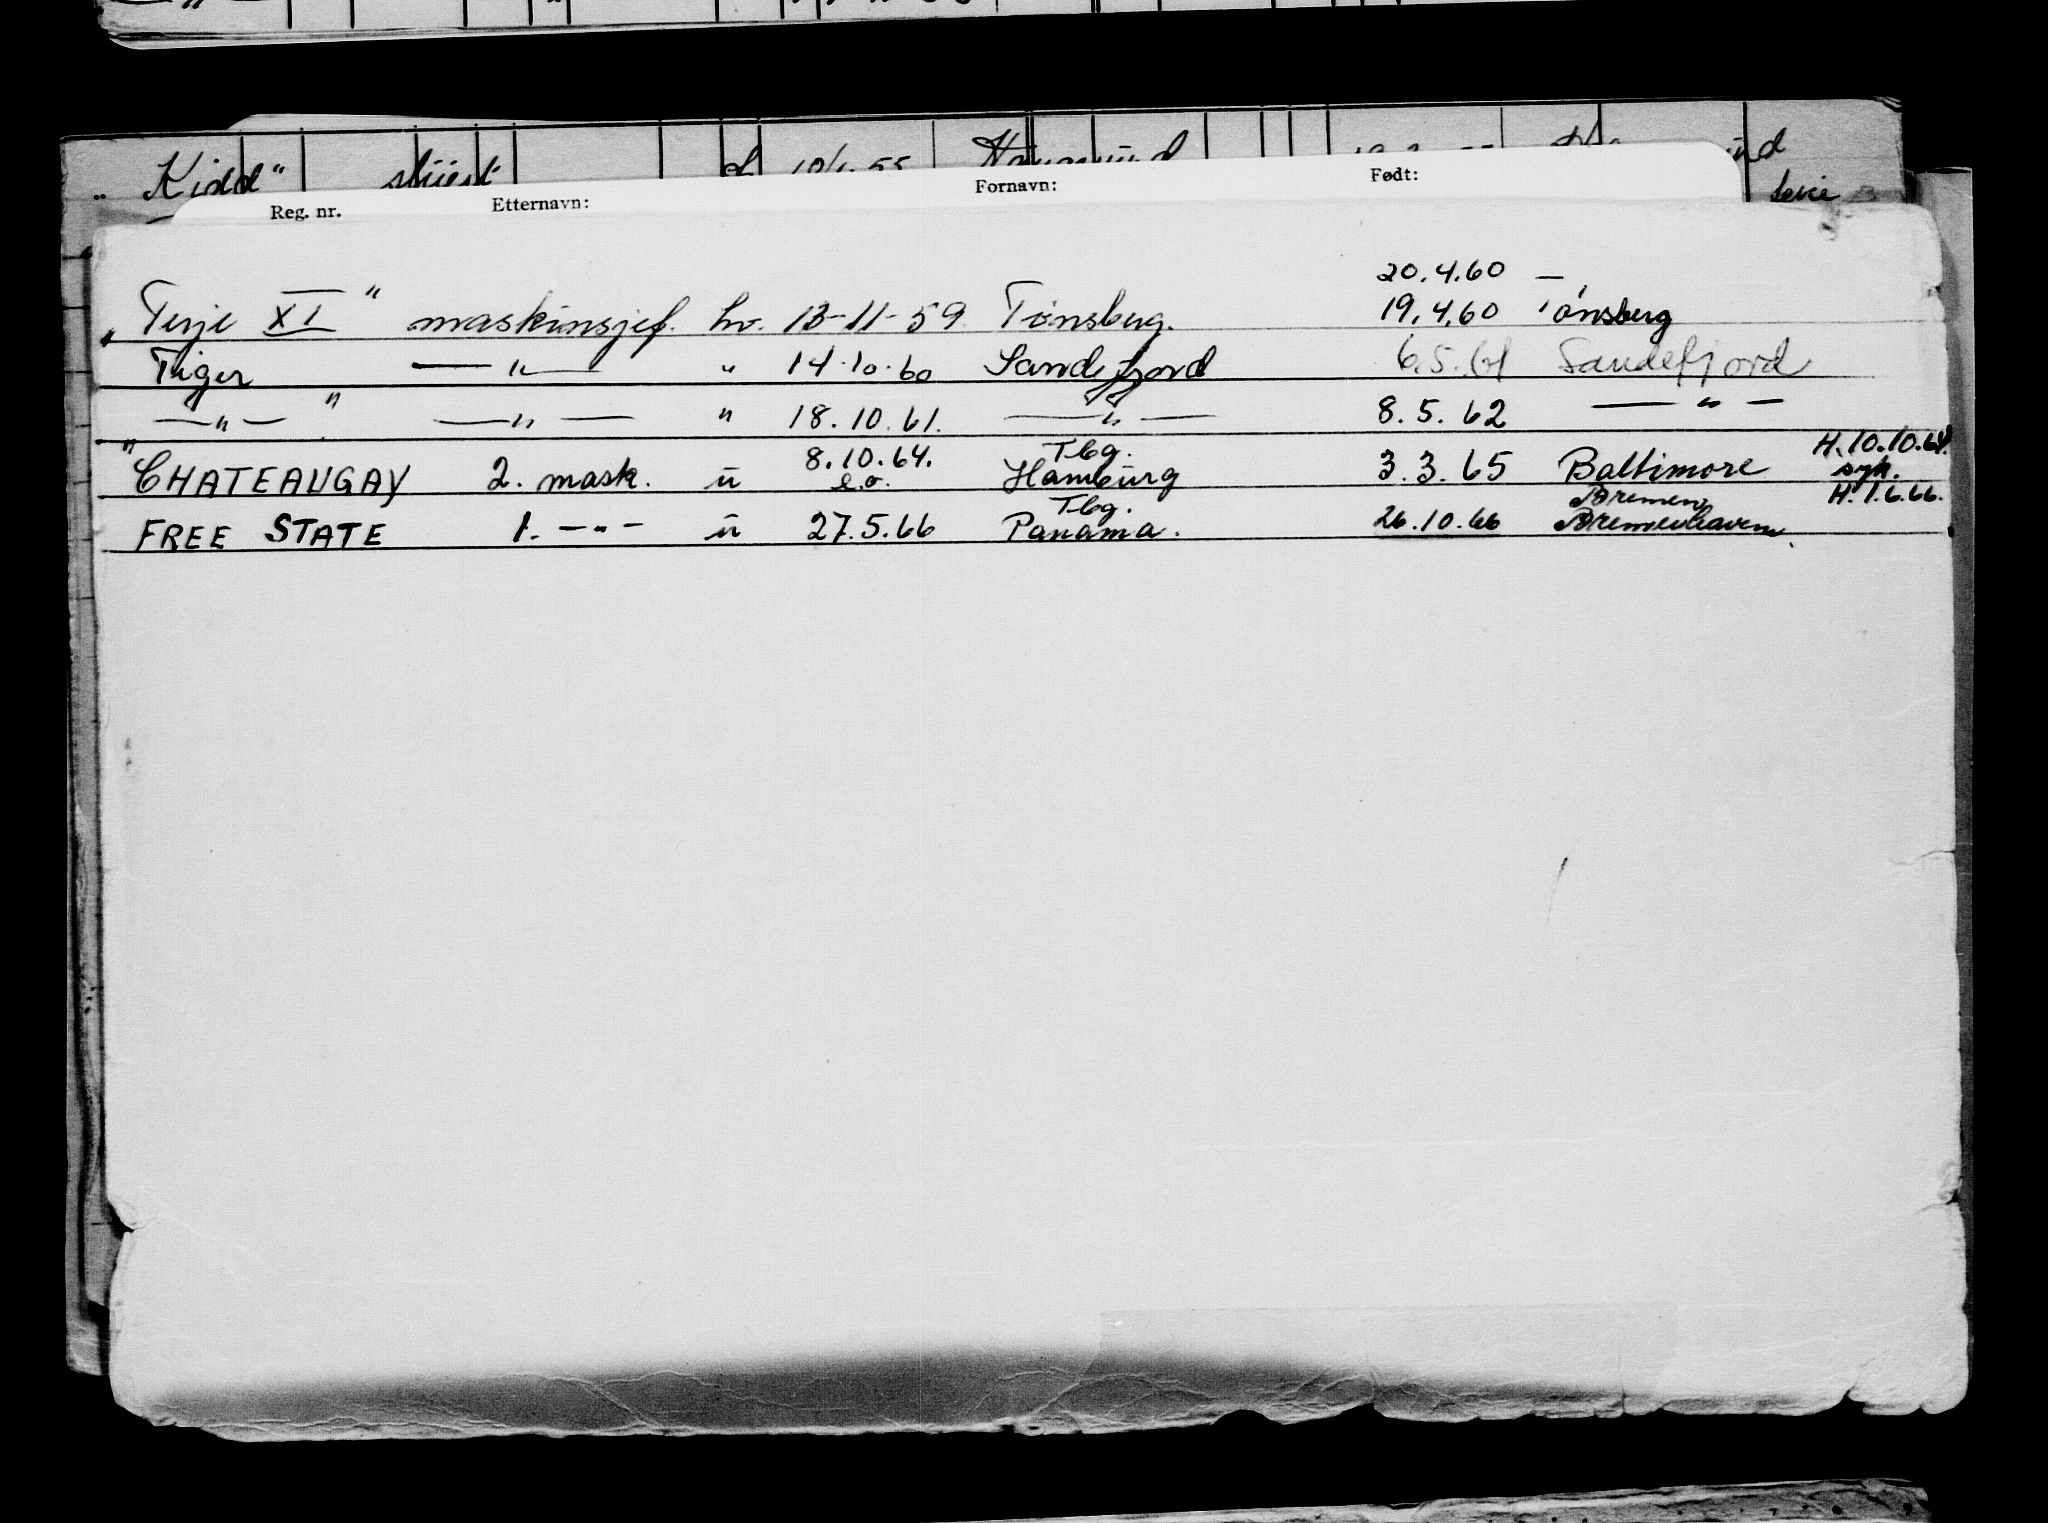 „ Kidd"
Reg. nr. Etternavn: Fornavn: Født:
20.4.60 —
„ Terje XI " maskinsjef. hv. 13-11-59 Tønsberg. 19.4.60 Tønsberg
Tiger — " — " 14.10.60 Sandefjord 6.5.61 Sandefjord
— " — " — " — " 18.10.61. — " — 8.5.62 — " —
8.10.64. Tbg. H. 10.10.64.
" CHATEAUGAY 2. mask. u e.o. Hamburg 3.3.65 Baltimore syk.
Tbg. Bremen H. 1.6.66.
FREE STATE 1. — " — u 27.5.66 Panama. 26.10.66 Bremerhaven